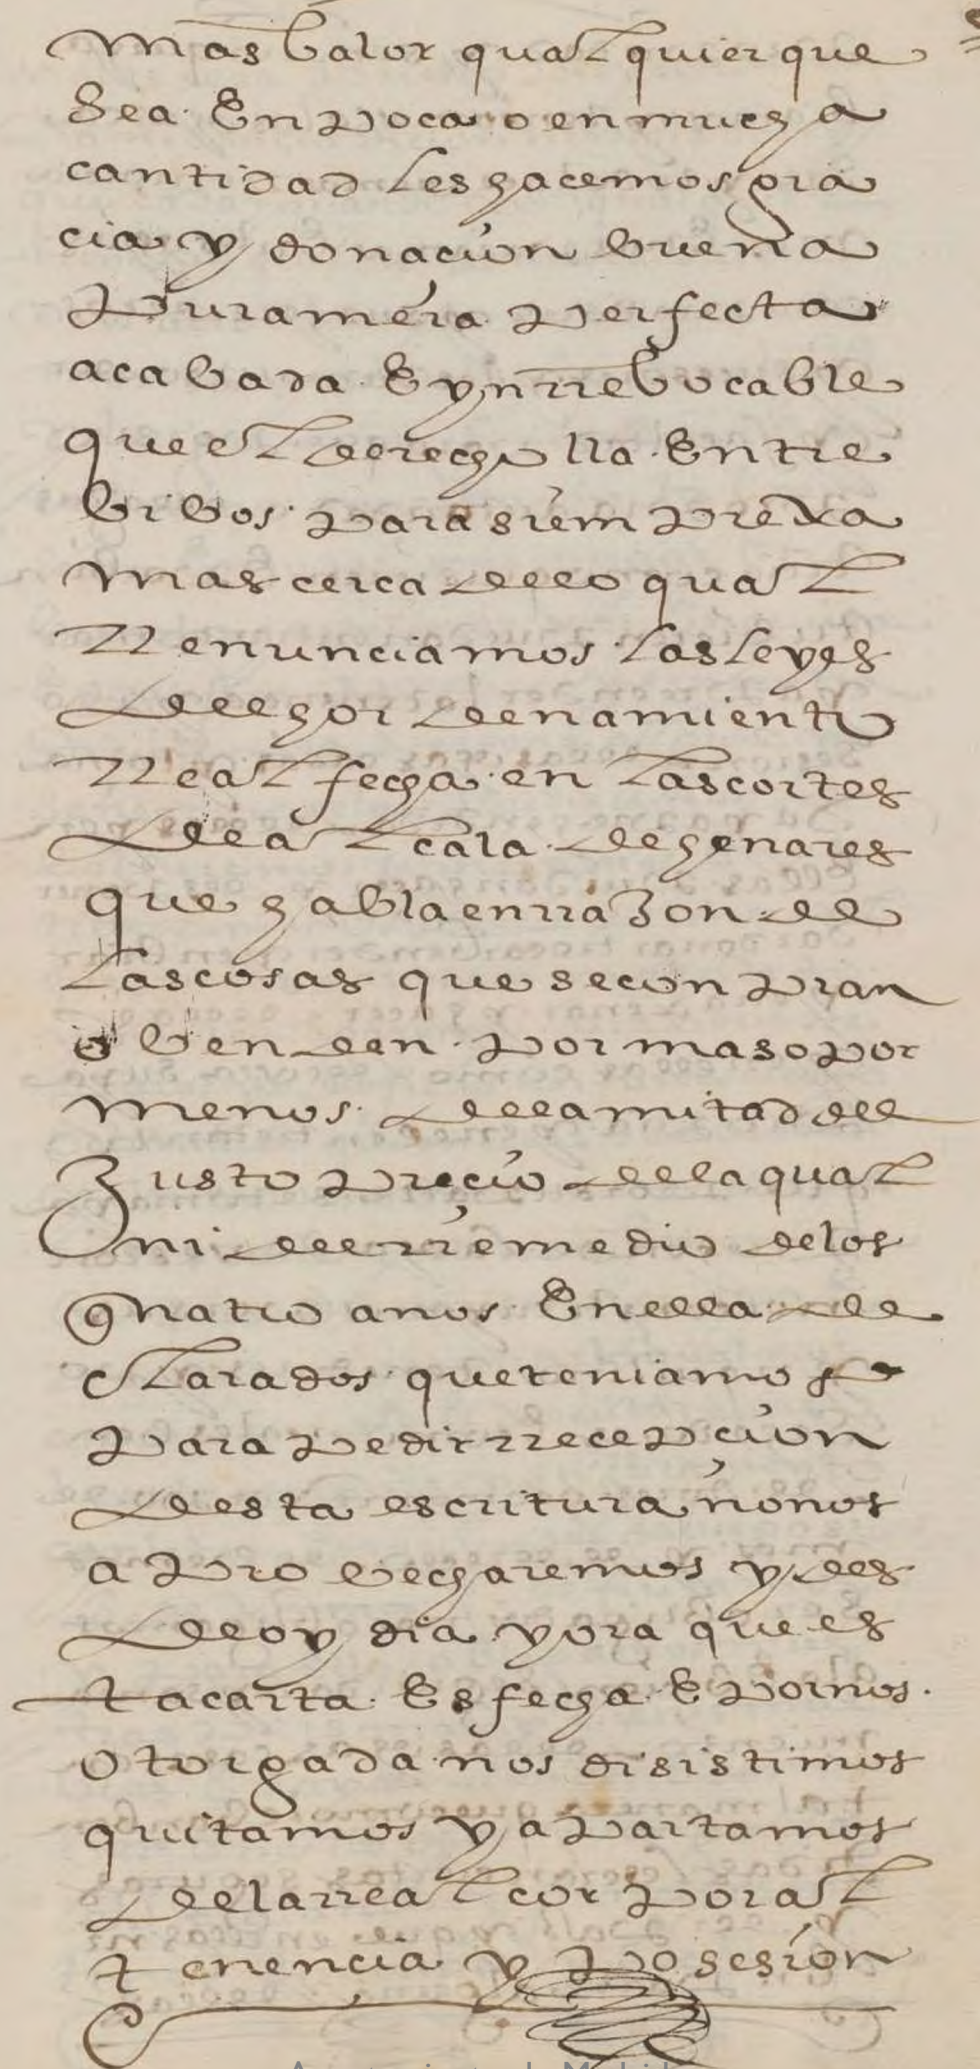 mas balor qualquier que
sea En poca o en mucha
cantidad les hacemos gra
cia y donacion buena
pura mera perfecta
acabada E ynrrebocable
que el derecho lla Entre
bibos para siempre xa
mas cerca de lo qual
Renunciamos las leyes
del hordenamiento
Real fecha en las cortes
de alcala de henares
que habla en rraçon de
las cosas que se conpran
o benden por mas o por
menos de la mitad del
Justo precio de la qual
ni del rremedio de los
quatro anos En ella de
clarados que teniamos
para pedir rrecepcion
desta escritura no nos
aprobecharemos y des
de oy dia y ora que es
ta carta Es fecha E por nos
otorgada nos disistimos
quitamos y apartamos
de la rreal corporal
tenencia y posesion